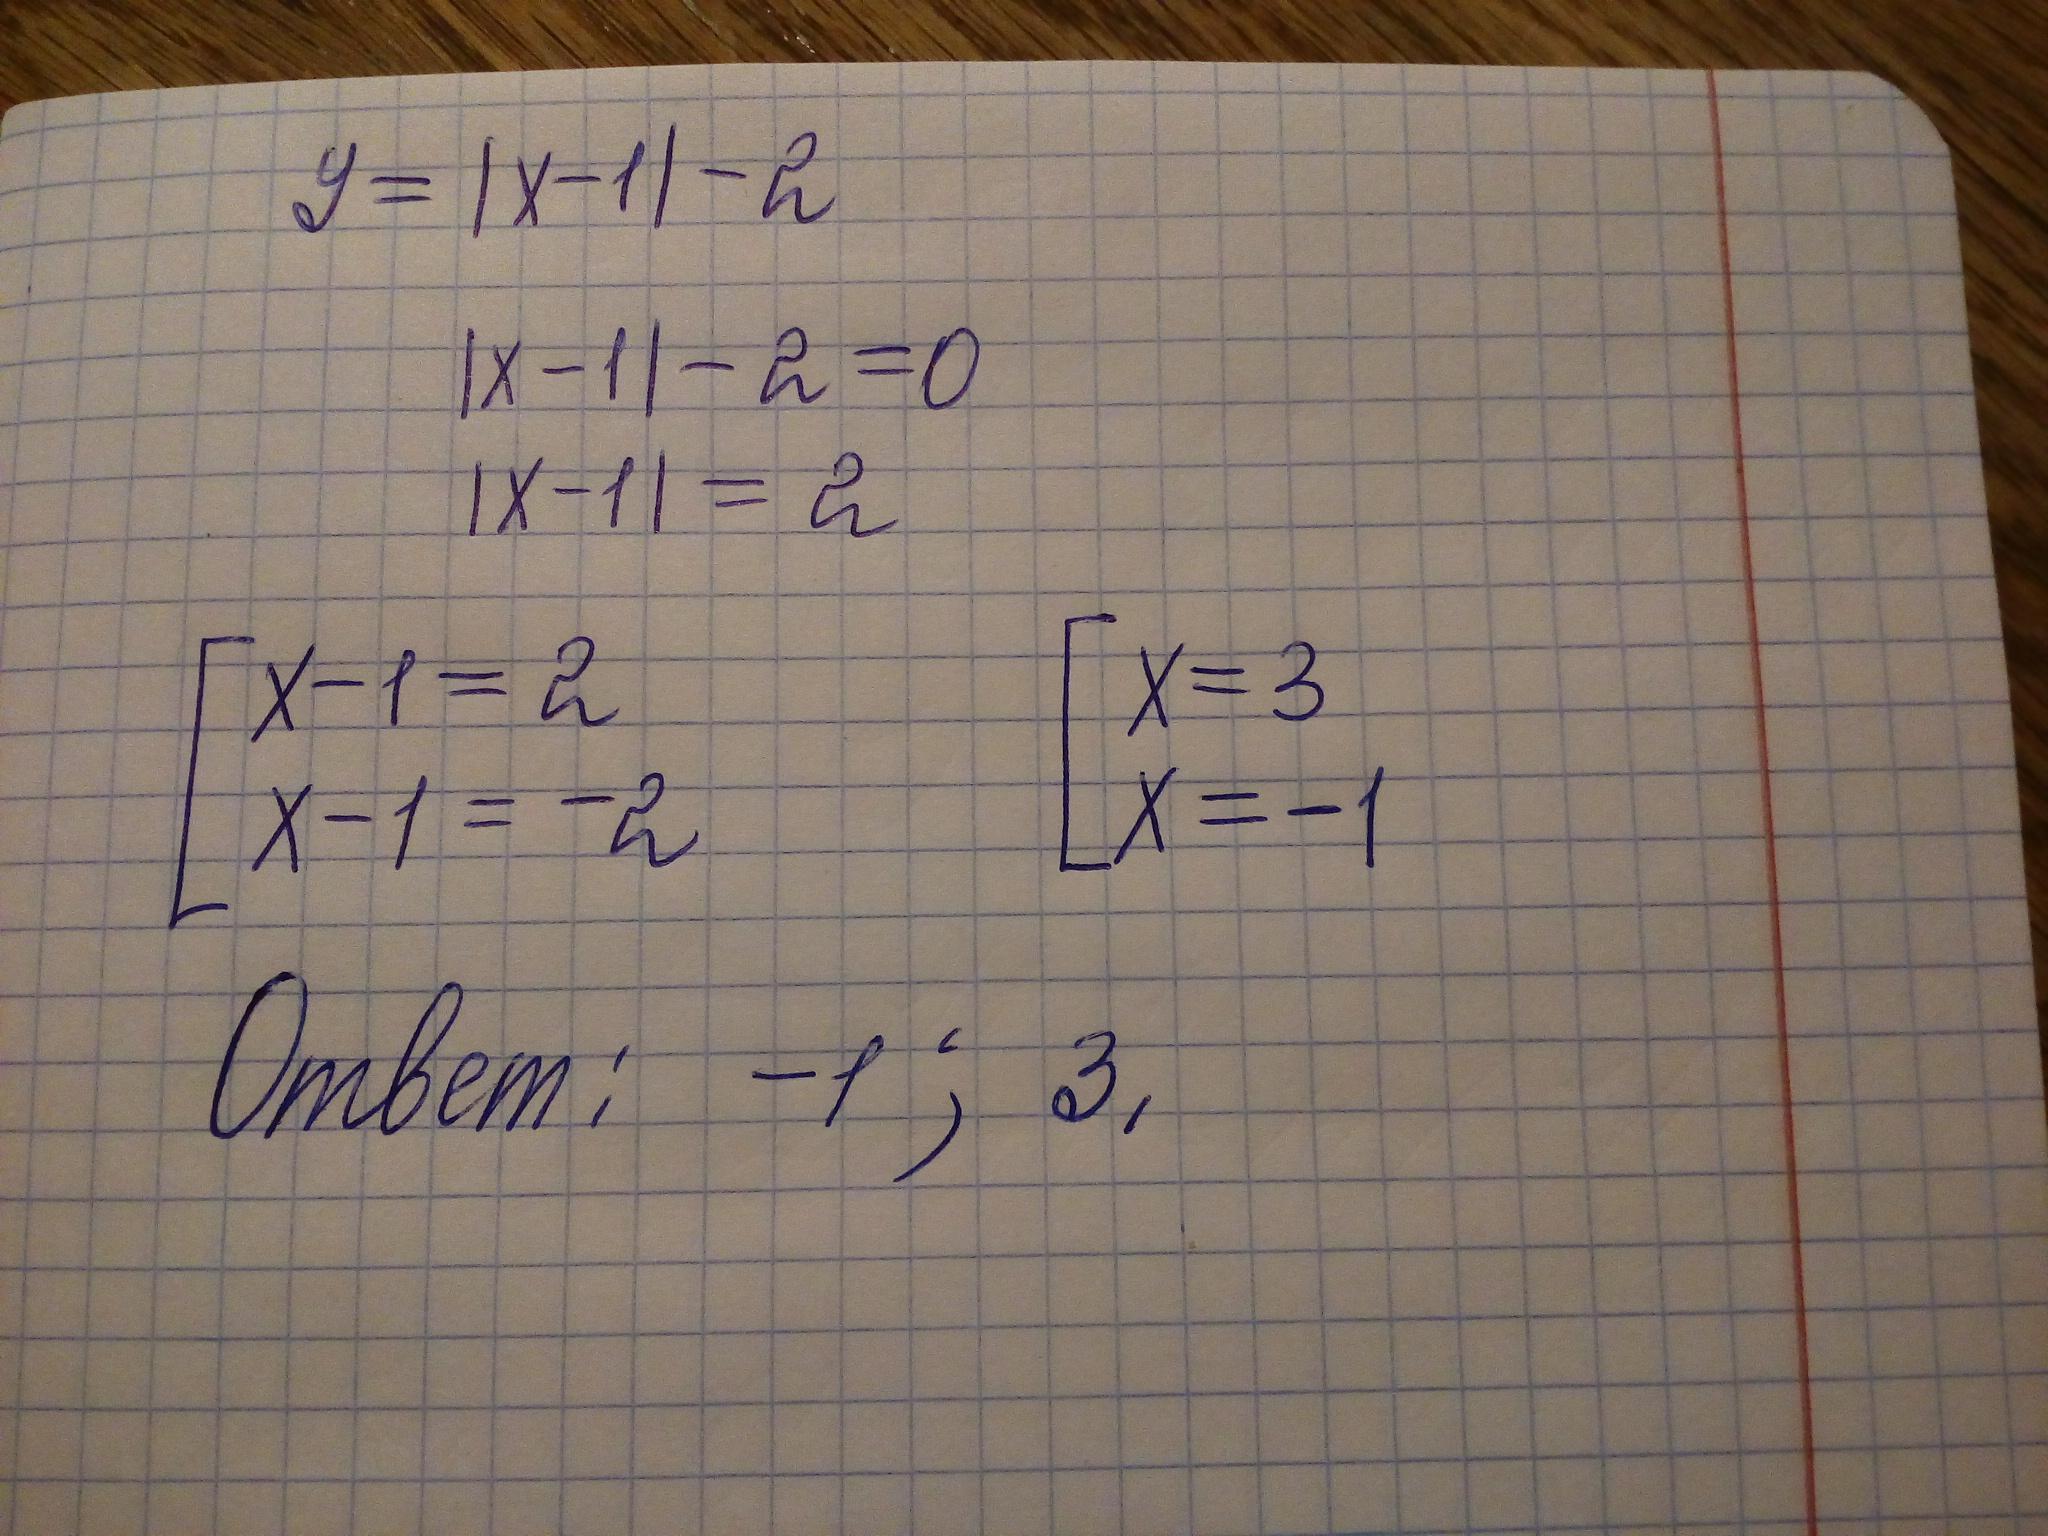 y = |x-1| - 2
|x-1| - 2 = 0
|x-1| = 2
[ x-1 = 2
x-1 = -2
[ x = 3
x = -1
Ответ: -1 ; 3.